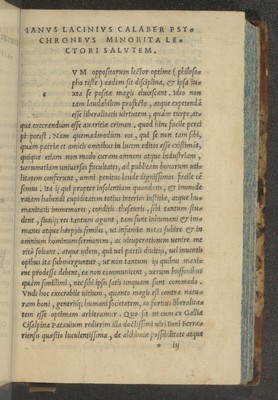 IANVS LACINIVS CALABER PSY-
CHRONEVS MINORITA LE-
CTORI SALVTEM.
VM oppositorum lector optime (philoso-
pho teste) eadem sit disciplina, & ipsa iu-
xta se posita magis elucescant, ideo non
tam laudabilem profecto, atque expetendā
esse liberalitatis virtutem, quàm turpe, atq
que execrandum esse auaritiæ crimen, quod hinc facile perci-
pi potest: Nam quemadmodum eos, qui se non tam sibi,
quàm patriæ et amicis omnibus in lucem editos esse existimāt,
quiq; etiam non modo curam omnem atque industriam,
verumetiam vniuersas facultates, ad publicam
utilitatem conferunt, omni penitus laude dignissimos facile cē
semus, ita ij qui propter insolentiam quandam, & immode
ratam habendi cupiditatem totius interim iustitiæ, atque hu-
manitatis immemores, conditis thesauris, sibi tantum stu-
dent, suasq; res tantum agunt, tam sunt inhumani &
manes atque harpyis similes, ut infamiæ notas subire & in
omnium hominum sermonem, ac uituperationem uenire me
rito soleant. atque ijdem, qui uel partis diuitijs, uel inuentis
opibus ita submerguntur, ut non tantum ijs quibus maxi-
me prodesse debent, ea non communicent, uerum
quàm simillimi, nec sibi ipsis satis unquam sunt commodi.
Vnde hoc execrabile uitium, quanto magis est contra natu-
ram boni, generisq; humani societatem, eo fortius liberalita-
tem esse optimam arbitramur. Quo fit ut cum ex Gallia
Cisalpina Patauium redierim illa doctissimi uiri Boni Ferra-
riensis quæstio luculentissima, de alchimiæ possibilitate atque
* iij